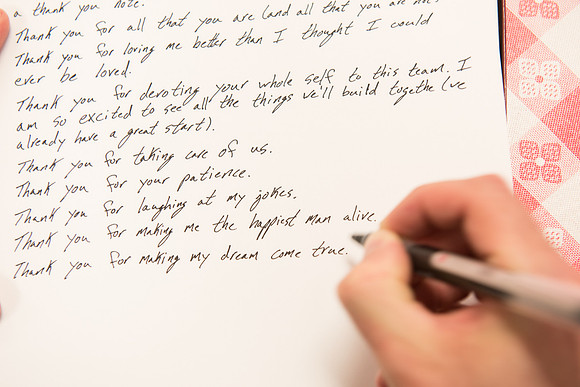 a thank you note.
Thank you for all that you are (and all that you are not).
Thank you for loving me better than I thought I could
ever be loved.
Thank you for devoting your whole self to this team. I
am so excited to see all the things we'll build togethe (we
already have a great start).
Thank you for taking care of us.
Thank you for your patience.
Thank you for laughing at my jokes.
Thank you for making me the happiest man alive.
Thank you for making my dream come true.